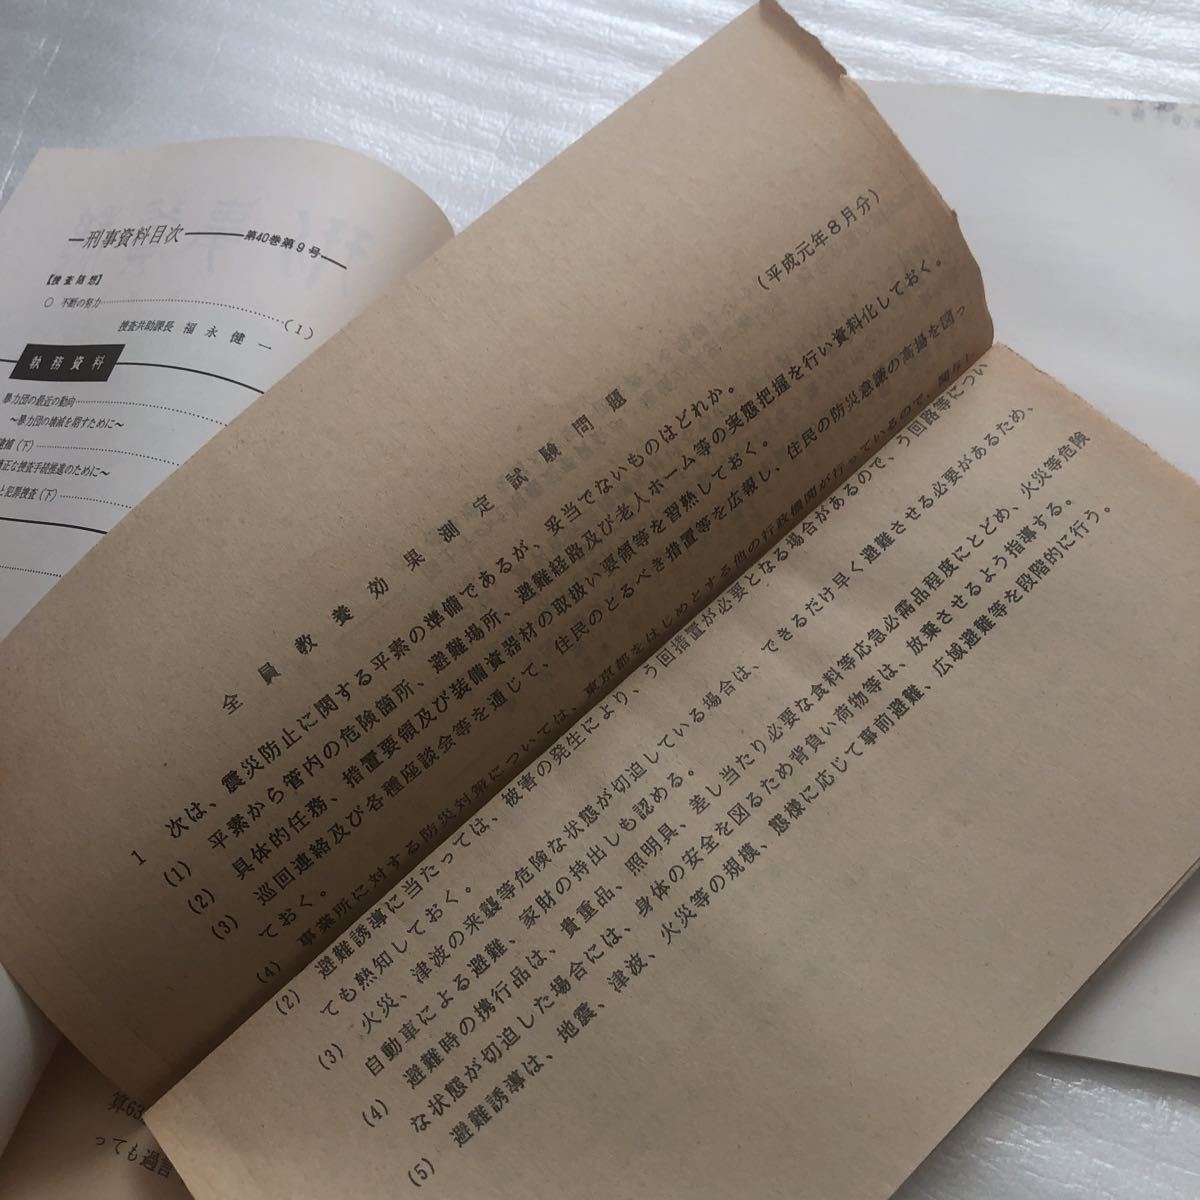 刑事資料目次 第40巻第9号
【捜査随想】
○ 不断の努力 (1)
捜査共助課長 福永健一
執務資料
暴力団の最近の動向
～暴力団の壊滅を期すために～
逮捕(下)
適正な捜査手続推進のために～
と犯罪捜査(下)
(平成元年8月分)
全員教養効果測定試験問題
1 次は、震災防止に関する平素の準備であるが、妥当でないものはどれか。
(1) 平素から管内の危険箇所、避難場所、避難経路及び老人ホーム等の実態把握を行い資料化しておく。
(2) 具体的任務、措置要領及び装備資器材の取扱い要領等を習熟しておく。
(3) 巡回連絡及び各種座談会等を通じて、住民のとるべき措置等を広報し、住民の防災意識の高揚を図っ
ておく。
(4) 事業所に対する防災対策については、東京都をはじめとする他の行政機関が行っているので、関与し
(2) 避難誘導に当たっては、被害の発生により、う回措置が必要となる場合があるので、う回路等につい
ても熟知しておく。
(3) 火災、津波の来襲等危険な状態が切迫している場合は、できるだけ早く避難させる必要があるため、
自動車による避難、家財の持出しも認める。
(4) 避難時の携行品は、貴重品、照明具、差し当たり必要な食料等応急必需品程度にとどめ、火災等危険
な状態が切迫した場合には、身体の安全を図るため背負い荷物等は、放棄させるよう指導する。
(5) 避難誘導は、地震、津波、火災等の規模、態様に応じて事前避難、広域避難等を段階的に行う。
算63
っても過言